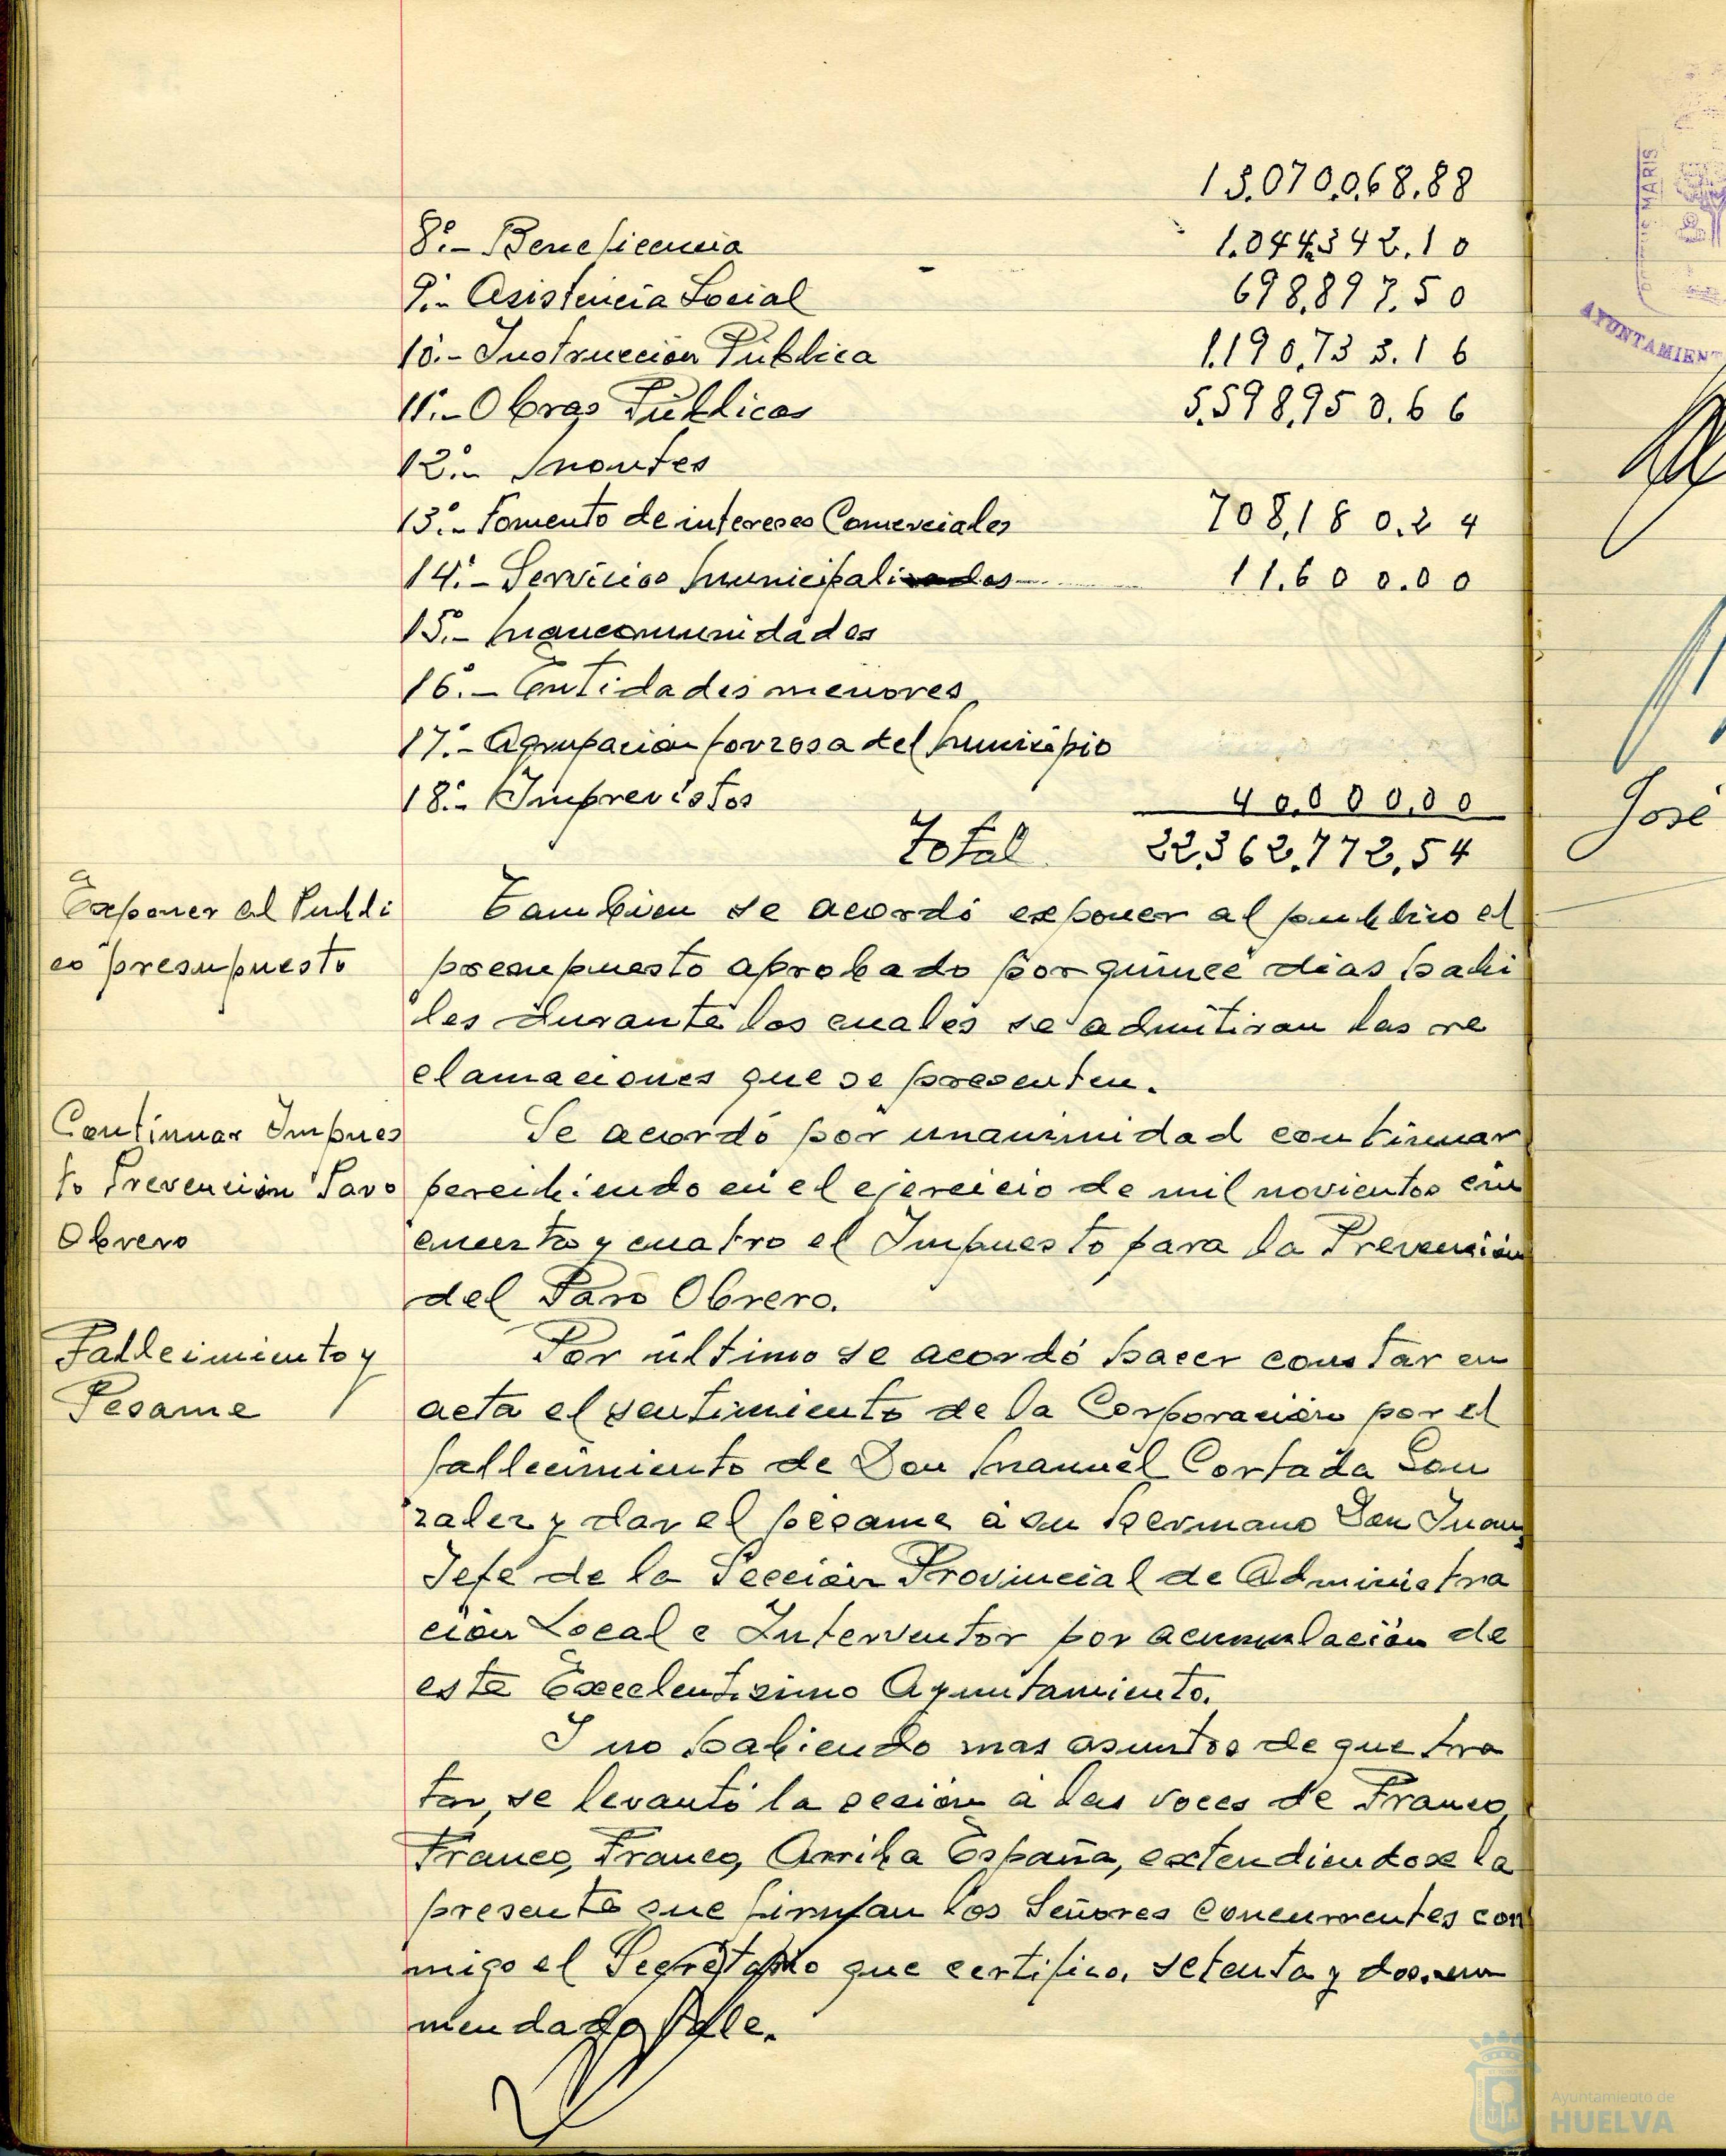 13.070.068.88
8º.- Beneficencia 1.044.342.10
9º.- Asistencia Social 698.897.50
10º.- Instruccion Pública 1.190.733.16
11º.- Obras Públicas 5.598.950.66
12º.- Montes
13º.- Fomento de intereses Comerciales 708.180.24
14º.- Servicios Municipalizados 11.600.00
15º.- Mancomunidades
16º.- Entidades menores
17º.- Agrupacion forzosa del Municipio
18º.- Imprevistos 40.000.00
Total 22.362.772.54
Exponer al Publi
co presupuesto
Tambien se acordó exponer al publico el
presupuesto aprobado por quince dias habi
les durante los cuales se admitiran las re
clamaciones que se presenten.
Continuar Impues
to Prevención Paro
Obrero
Se acordó por unanimidad continuar
percibiendo en el ejercicio de mil novientos cin
cuenta y cuatro el Impuesto para la Prevención
del Paro Obrero.
Fallecimiento y
Pesame
Por último se acordó hacer constar en
acta el sentimiento de la Corporación por el
fallecimiento de Don Manuel Cortada Gon
zalez y dar el pésame á su hermano Don Juan,
Jefe de la Sección Provincial de Administra
ción Local e Interventor por acumulación de
este Excelentisimo Ayuntamiento.
I no habiendo mas asuntos de que tra
tar, se levantó la sesión á las voces de Franco,
Franco, Franco, Arriba España, extendiendose la
presente que firman los Señores Concurrentes con
migo el Secretario que certifico. setenta y dos. en
mendado Vale.
MARIS
AYUNTAMIENT
José
Ayuntamiento de
HUELVA